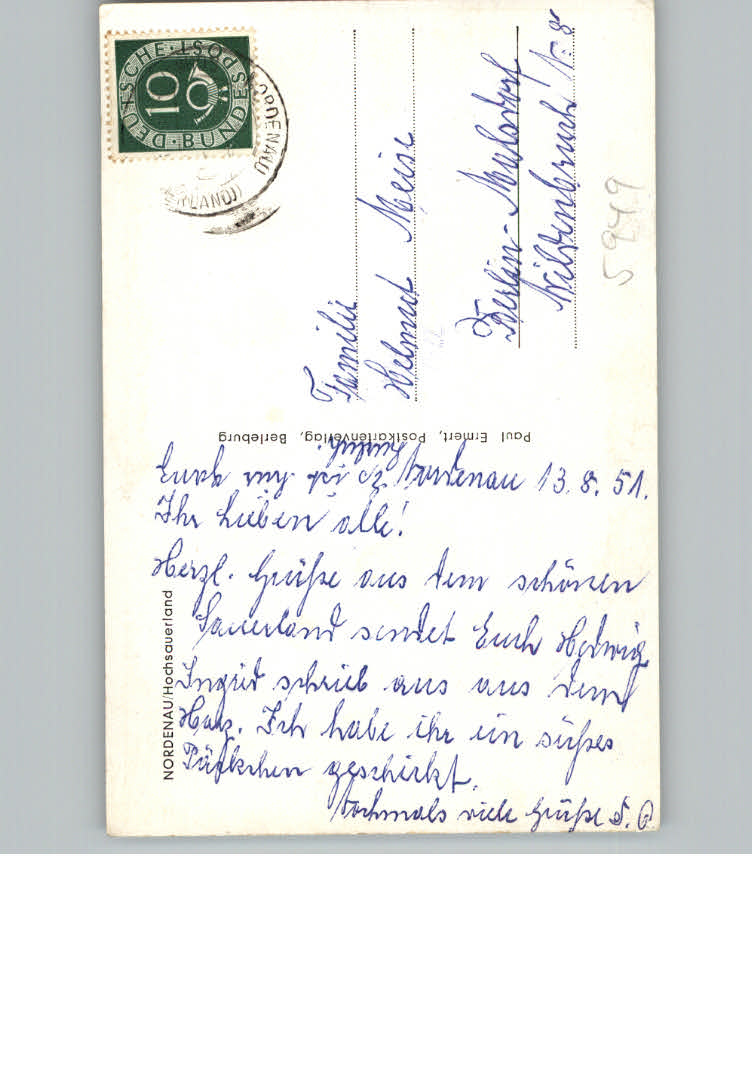 DEUTSCHE BUNDESPOST
10
Familie
Helmut Meise
Berlin-Mulsdorf
Wildenbruch
5949
Paul Ermert, Postkartenverlag, Berleburg
NORDENAU/Hochsauerland
Nordenau 13. 8. 51.
Ihr Lieben alle!
Herzl. Grüße aus dem schönen
Sauerland sendet Euch Hedwig
Ingrid schrieb aus aus dem
Harz. Ich habe ihr ein süßes
Päckchen geschickt.
Nochmals viele Grüße